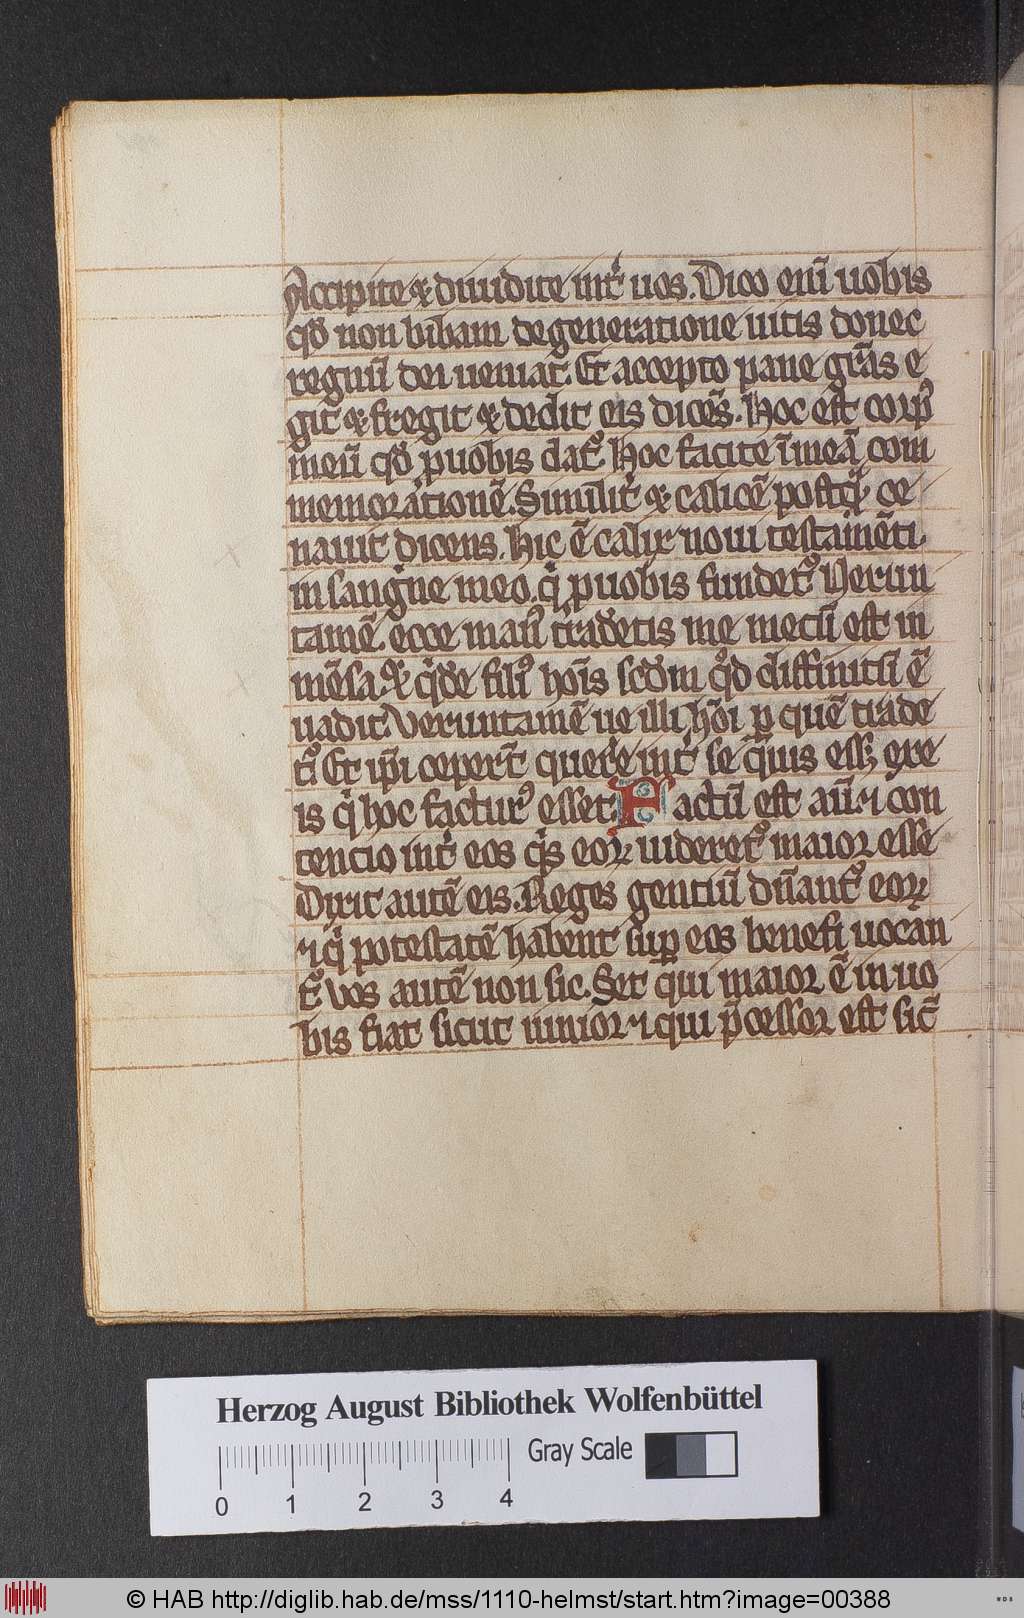 Accipite ⁊ diuidite int͛ uos. Dico enī uobis
qd̄ non bibam de generatione uitis donec
regnū dei ueniat. Et accepto pane gr̄as e
git ⁊ fregit ⁊ dedit eis dicēs. Hoc est corpꝰ
meū qd̄ p uobis datᷣ. Hoc facite ī meā com
memorationē. Similit͛ ⁊ calicē postqͣ ce
nauit dicens. Hic ē calix noui testamēti.
in sanguine meo. qͥ p uobis fundetᷣ Verun
tamē. ecce manꝰ tradētis me mecū est in
mēsa. ⁊ qͥdē filiꝰ hoīs scdm qd̄ diffinitū ē
uadit. Veruntamē ue illi hoī ꝑ quē trade
tᷣ. Et ip̄i ceper̄t querere int͛ se quis ess; ex e
is qͥ hoc facturꝰ esset. Factū est aū. ⁊ con
tencio int͛ eos qͥs eoꝝ uideretᷣ maior esse
Dixit autē eis. Reges gentiū dn̄antᷣ eoꝝ
⁊ qͥ potestatē habent suꝑ eos benefi uocan
tᷣ. Vos autē non sic. Set qui maior ē in uo
bis fiat sicut iunior ⁊ qui p̄cessor est sic̄
Herzog August Bibliothek Wolfenbüttel
Gray Scale
0 1 2 3 4
© HAB http://diglib.hab.de/mss/1110-helmst/start.htm?image=00388